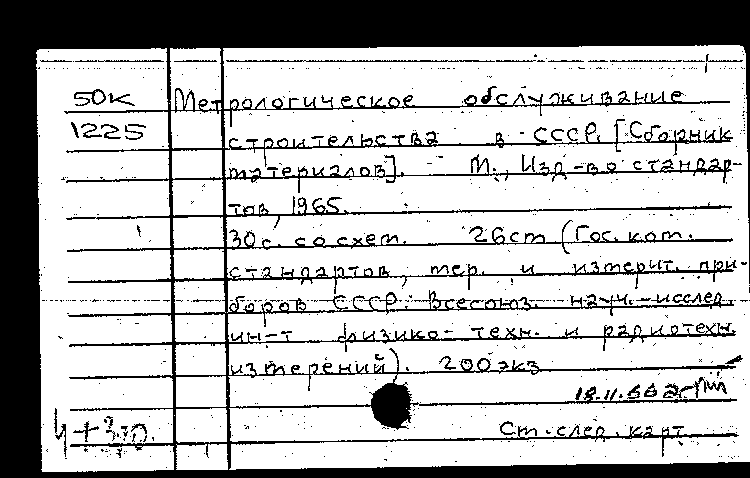 50к Метрологическое обслуживание
1225 строительства в СССР. [Сборник
материалов]. М., Изд-во стандар-
тов, 1965.
30с. со схем. 26см (Гос. ком.
стандартов, мер. и измерит. при-
боров СССР. Всесоюз. науч.-исслед.
ин-т физико-техн. и радиотехн.
измерений). 200экз
18.11.66
Ст. след. карт